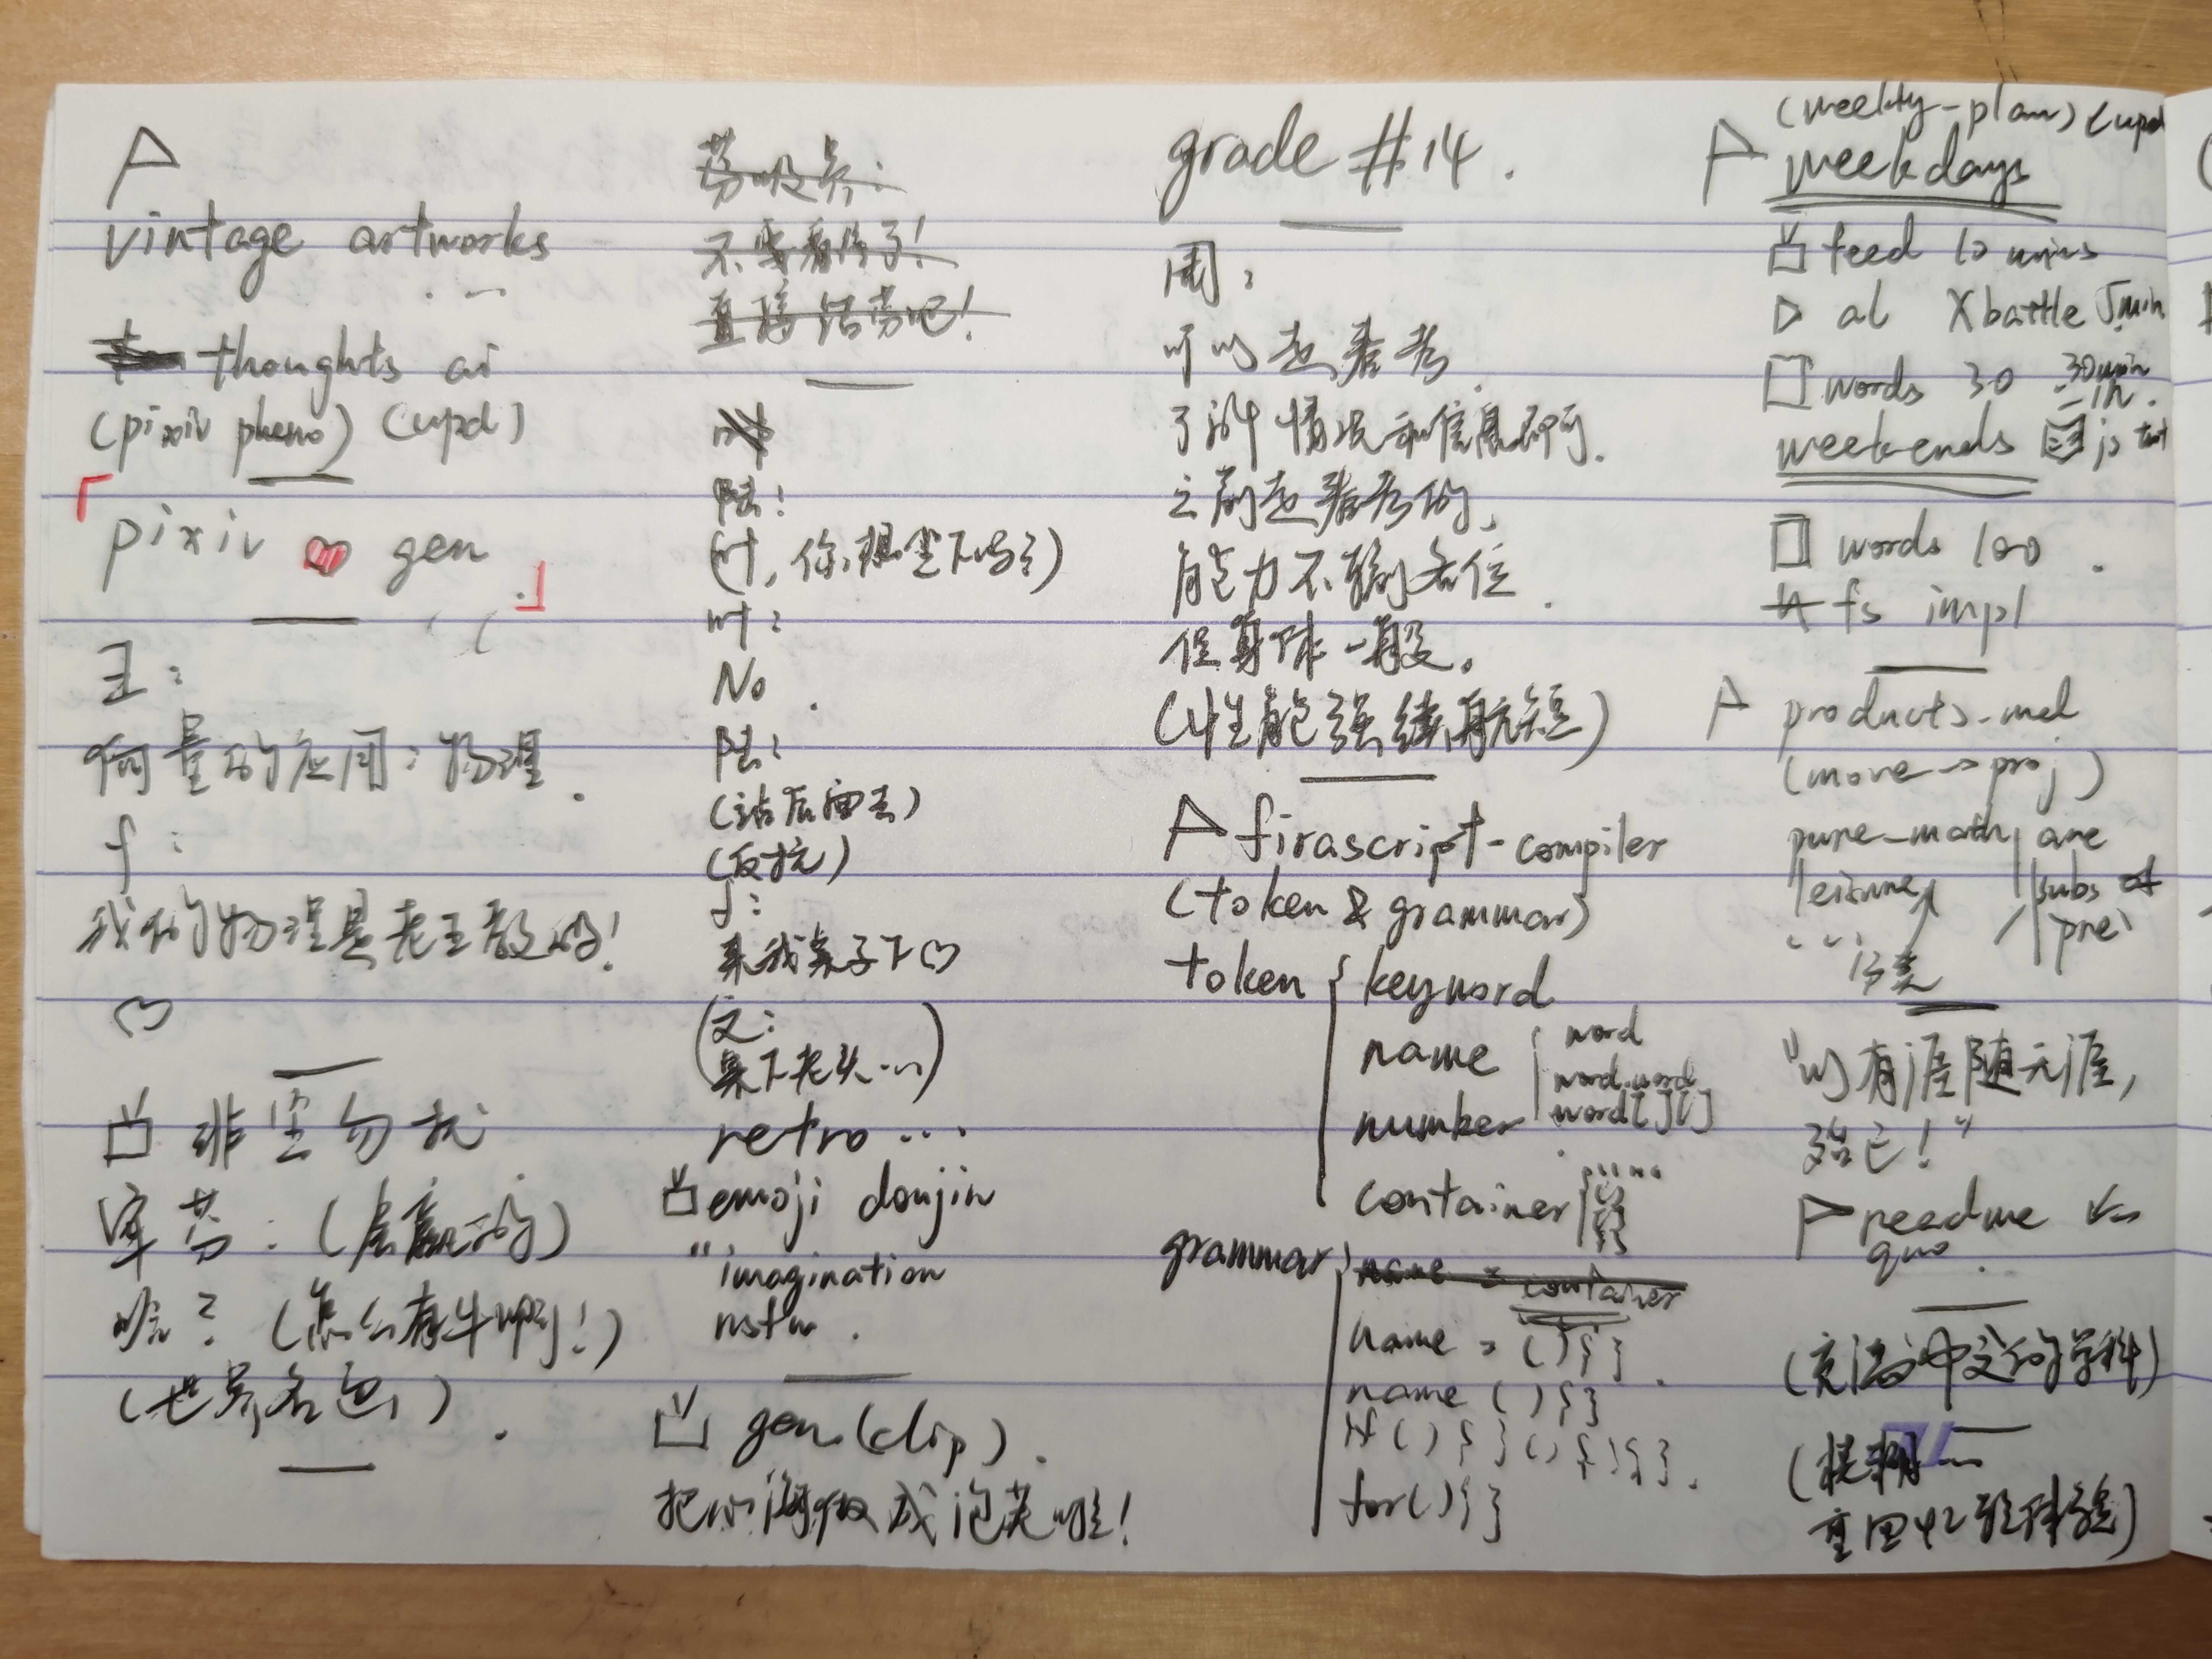 vintage artworks
thoughts ai
(pixiv pheno) (upd)
「pixiv ♥ gen」
王:
向量的应用:物理.
f:
我的物理是老王教的!
♡
非尘勿扰
(怎么有牛啊!)
(世界名画).
不要看你了!
直接给劳吧!
陆!
(叶,你想坐下吗?)
叶:
No.
陆:
(站后面去)
(反抗)
f:
来我桌子下♡
(文:
桌下老头…)
retro ...
emoji doujin
"imagination
nstw.
gen (clip).
grade #14.
周:
可以去春考.
了解情况和信息啊.
之前去春考的,
能力不输各位.
但身体一般。
(性能强续航短)
firascript-compiler
(token & grammar)
token { keyword
name { word
word.word
word[][]
number
container
grammar { name = container
name = (){}.
name (){}
if(){}(){}{}.
for(){}
(weekly-plan) (upd
weekdays
feed 10 mins
al X battle 5min
words 30 30min
-1h.
weekends
words 100.
fs impl
products.md
(move -> proj)
pure_math, are
leisure, subs of
pre
"以有涯随无涯,
殆已!"
readme <-
quo.
(模糊…